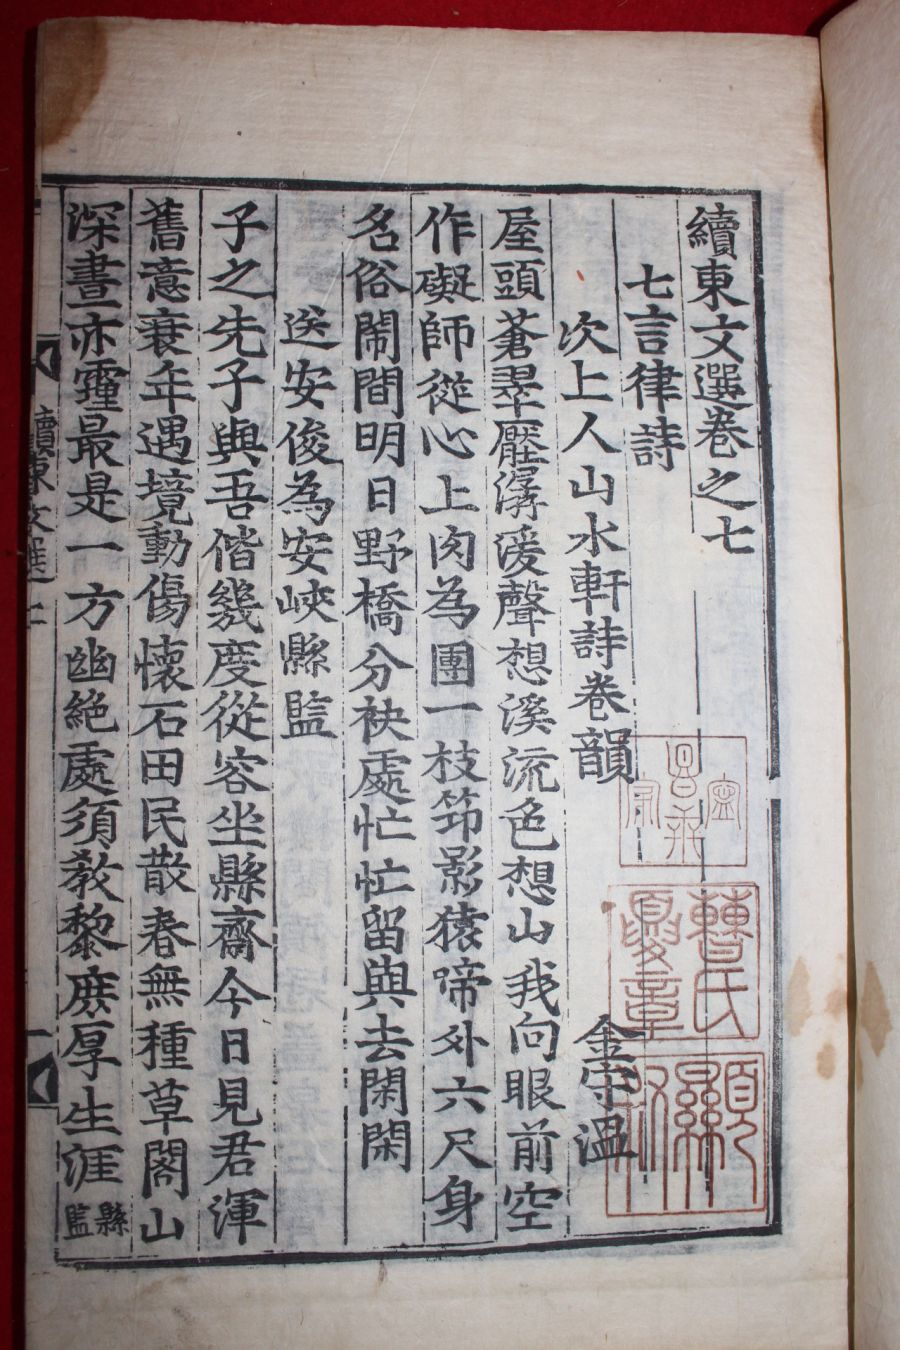 續東文選卷之七
七言律詩
次上人山水軒詩卷韻 金守温
屋頭蒼翠壓潺湲聲想溪流色想山我向眼前空
作礙師從心上肉為團一枝笻影猿啼外六尺身
名俗鬧間明日野橋分袂處忙忙留與去閑閑
送安俊為安峽縣監
子之先子與吾偕幾度從容坐縣齋今日見君渾
舊意衰年遇境動傷懷石田民散春無種草閣山
深晝亦霾最是一方幽絕處須敎黎庶厚生涯縣監
續東文選七
曺氏
章
顯